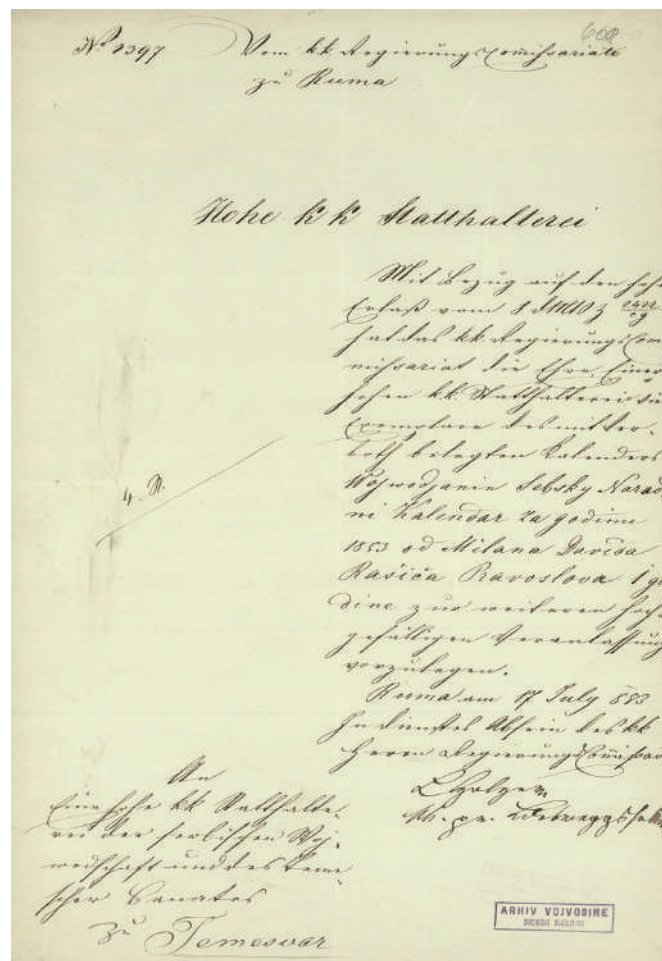 608
No 1397 Vom kk. Regierungscomissariate
zu Ruma
Hohe k k Statthalterei
Mit Bezug auf den hohe
Erlaß vom 8 d
hat das kk. Regierungs Com
missariat die Ehre, Einer
hohen kk. Statthalterei
Exemplare des mit Ver-
both belegten Kalenders
Wojwodjanin Sebsky Narod
ni Kalendar za godinu
1853 od Milana Davida
Rašića Pravoslova 1 go
dine zur weiteren hoch
gefälligen Veranlassung
vorzulegen.
4. St.
Ruma am 17 July 853
In dienstes Absein des kk
Herrn Regierungs Comissar
An
Eine hohe kk Statthalte-
rei der serbischen Woj-
wodschaft und des Teme-
scher Banates
zu Temesvar
ARHIV VOJVODINE